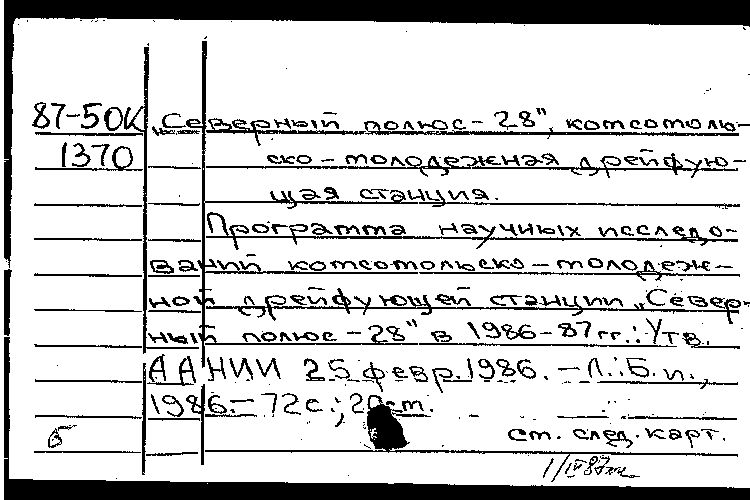 87-50К „Северный полюс-28", комсомоль-
1370 ско-молодежная дрейфую-
щая станция.
Программа научных исследо-
ваний комсомольско-молодеж-
ной дрейфующей станции „Север-
ный полюс-28" в 1986-87гг.: Утв.
ААНИИ 25 февр.1986. - Л.: Б.и.,
1986.- 72с.; 20см.
б см. след. карт.